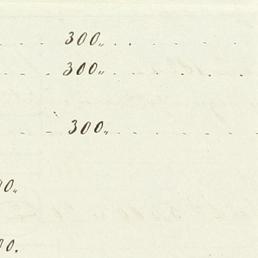 300„
300„
300„
00„
00.